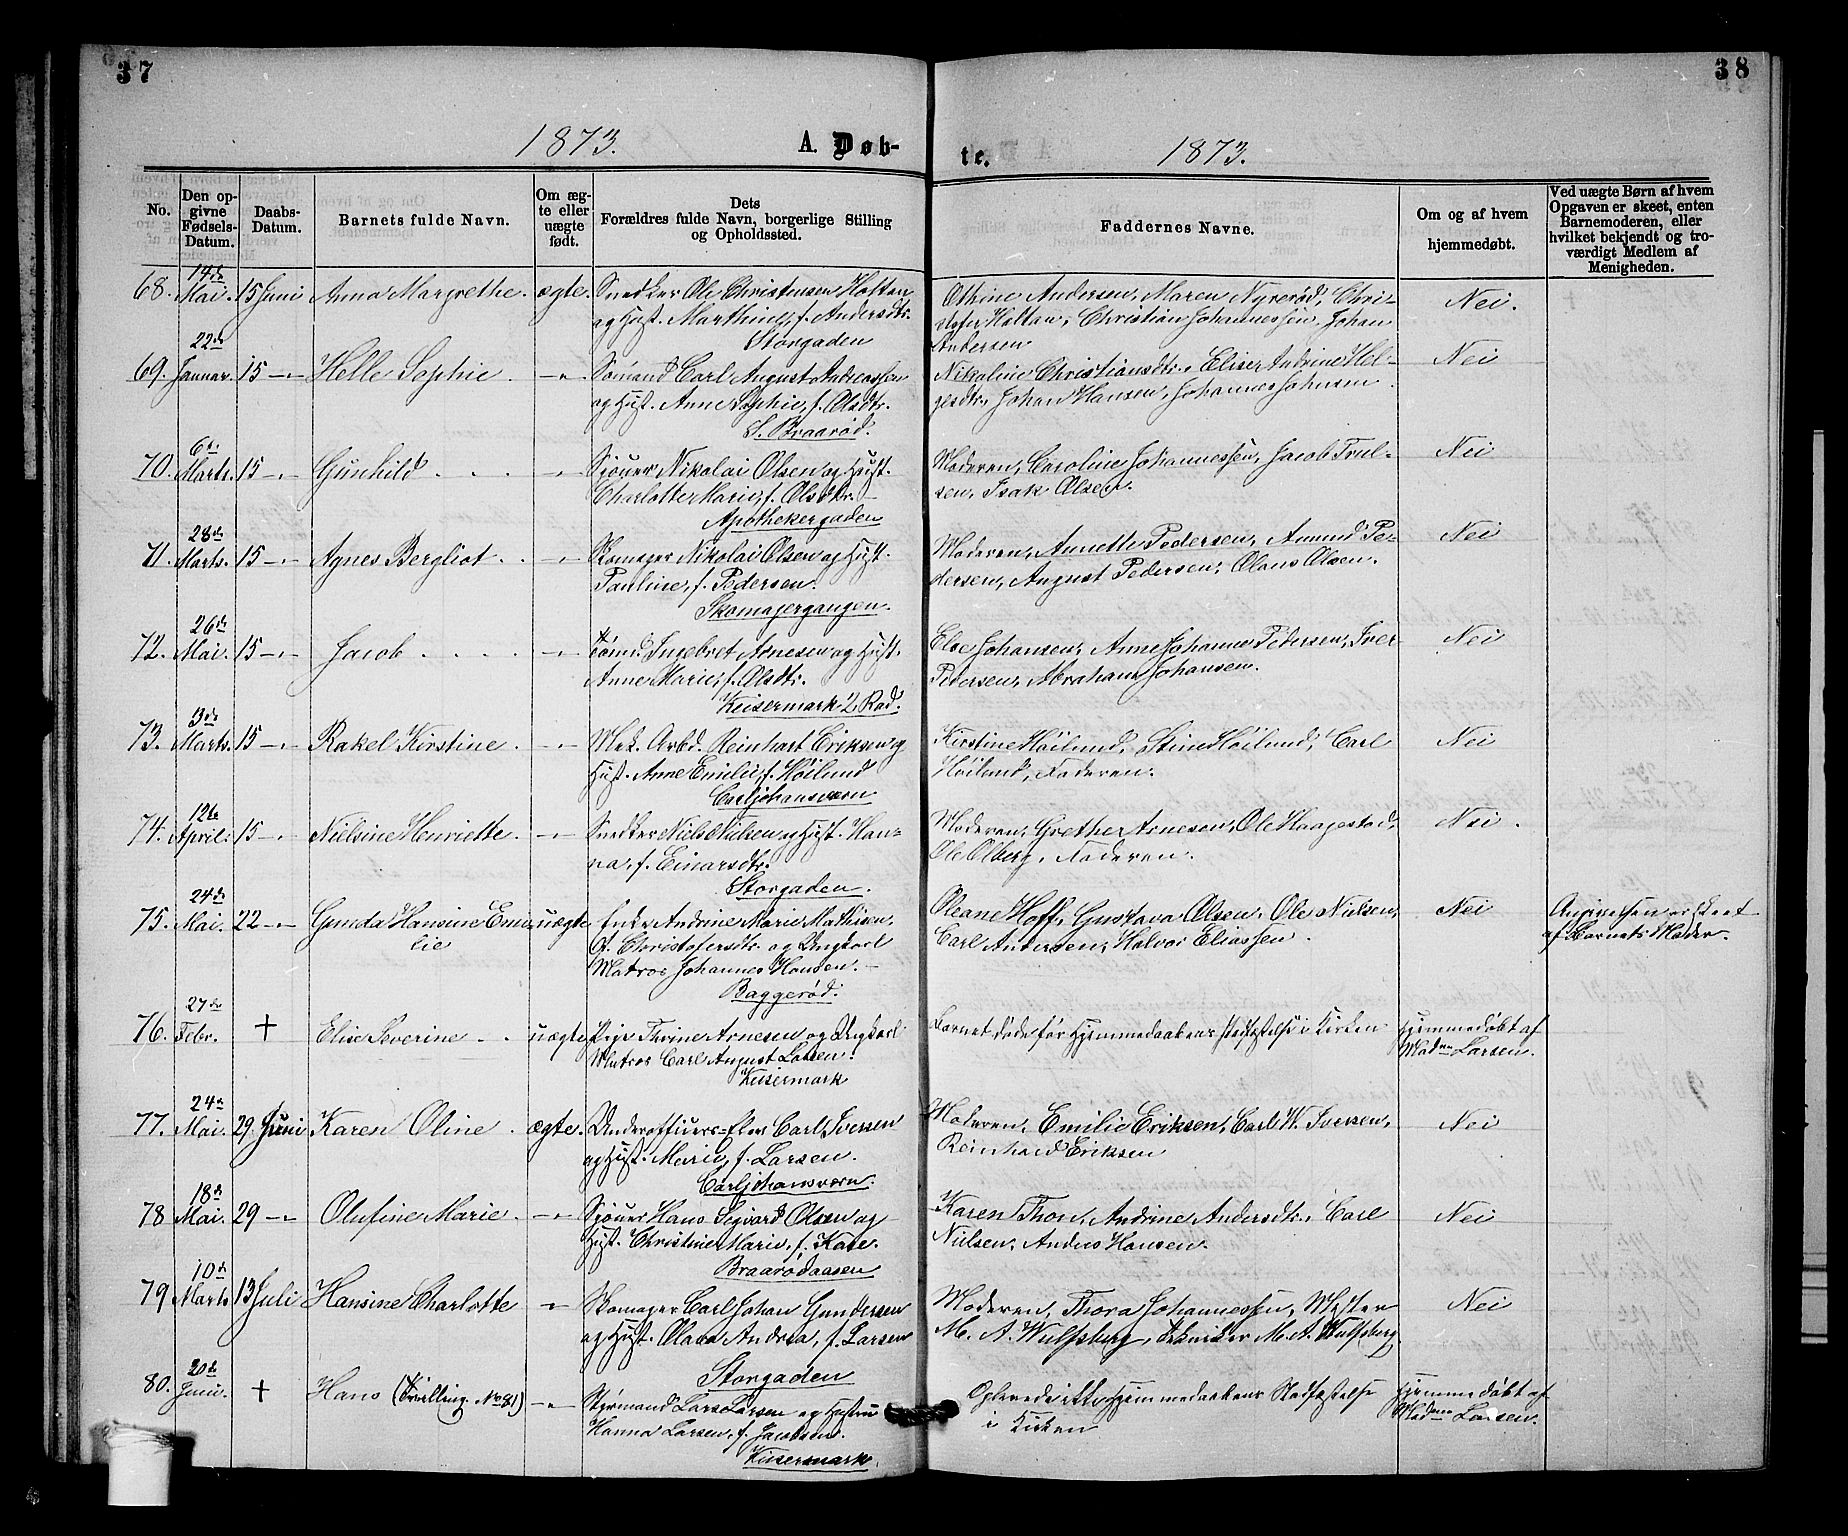 37
38
1873. A. Døb-
te. 1873.
No.
Den op-
givne
Fødsels-
Datum.
Daabs-
Datum.
Barnets fulde Navn.
Om æg-
te eller
uægte
født.
Dets
Forældres fulde Navn, borgerlige Stilling
og Opholdssted.
Faddernes Navne.
Om og af hvem
hjemmedøbt.
Ved uægte Børn af hvem
Opgaven er skeet, enten
Barnemoderen, eller
hvilket bekjendt og tro-
værdigt Medlem af
Menigheden.
68. 14de Mai. 15 Juni Anna Margrethe. ægte. Snedker Ole Christensen
og Hust. Marthine, f. Andersdtr.
Storgaden
Othine Andersen, Maren Nyrerød, Chri-
stofer Holtan, Christian Johannessen, Johan
Andersen
Nei.
69. 22de Januar. 15 -"- Helle Sophie. -"- Sømand Carl August Andreassen
og Hust. Anne Sophie, f. Olsdtr.
S. Braarød.
Nikoline Christiansdtr., Elise Andrine Hel-
gesdtr., Johan Hansen, Johannes Johnsen
Nei
70. 6te Marts. 15 -"- Gunhild -"- Sjouer Nikolai Olsen og Hust.
Charlotte Marie, f. Olsdtr. -
Apothekergaden
Moderen, Caroline Johannessen, Jacob Trul-
sen, Isak Olsen.
Nei
71. 28de Marts. 15 -"- Agnes Bergliot -"- Skomager Nikolai Olsen og Hust.
Pauline, f. Pedersen.
Skomagergangen.
Moderen, Annette Pedersen, Amund Pe-
dersen, August Pedersen, Olaus Olsen.
Nei
72. 26de Mai. 15 -"- Jacob -"- Tømd. Ingebret Arnesen og Hust.
Anne Marie, f. Olsdtr.
Keisermark 2 Rad.
Else Johansen, Anne Johanne Pedersen, Iver
Pedersen, Abraham Johansen.
Nei
73. 3de Marts. 15 -"- Rakel Kirstine. -"- Mek. Arbd. Reinhart Eriksen og
Hust. Anne Emilie, f. Höilund
Carljohansværn
Kirstine Höilund, Stine Höilund, Carl
Höilund, Faderen.
Nei
74. 12te April. 15 -"- Nielsine Henriette -"- Snedker Niels Nilsen og Hust. Han-
na, f. Einarsdtr.
Storgaden.
Moderen, Grethe Arnesen, Ole Haagestad,
Ole Olberg, Faderen.
Nei.
75. 24de Mai. 22 -"- Gunda Hansine Emi-
lie uægte Enke Andrine Marie Mathisen,
f. Christofersdtr. og Ungkarl
Matros Johannes Hansen. -
Baggerød.
Oleane Hoff, Gustava Olsen, Ole Nielsen,
Carl Andersen, Halvor Eliassen.
Nei
Angivelsen er skeet
af Barnets Moder.
76. 27de Febr. + Elise Severine uægte Pige Thrine Arnesen og Ungkarl
Matros Carl August Larsen.
Keisermark
Barnet døde før Hjemmedaabens Stadfæstelse i Kirken
Hjemmedøbt af
Madmn Larsen.
77. 24de Mai. 29 Juni Karen Oline. ægte. Underofficers-Elev Carl Iversen
og Hust. Marie, f. Larsen.
Carljohansværn.
Moderen, Emilie Eriksen, Carl W. Iversen,
Reinhard Eriksen
Nei
78 18de Mai. 29 -"- Olufine Marie. -"- Sjouer Hans Sigvard Olsen og
Hust. Christine Marie, f. Kase.
Braarødaasen
Karen Thon, Andrine Andersdtr., Carl
Nielsen, Anders Hansen.
Nei
79 10de Marts 13 Juli Hansine Charlotte -"- Skomager Carl Johan Gundersen
og Hust. Olava Andrea, f. Larsen
Storgaden
Moderen, Thora Johannessen, Mester
M. A. Wulfsberg, Tekniker M. A. Wulfsberg.
Nei
80. 20de Juni. + Hans (Tvilling. No 81) -"- Styrmand Lars Larsen og Hustru
Hanna Larsen, f. Jacobsen.
Keisermark
Oplevede ikke Hjemmedaabens Stadfæstelse
i Kirken
Hjemmedøbt af
Madmn Larsen.